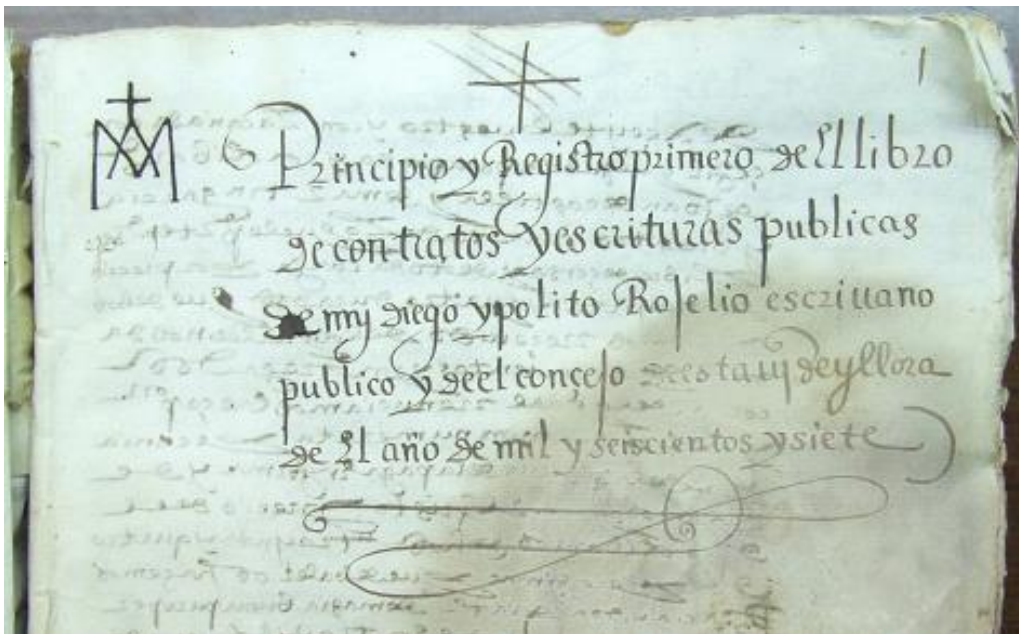 1
Principio y Registro primero de El libro
de contratos y escrituras publicas
de my diego ypolito Roselio escriuano
publico y de el concejo de esta uij de yllora
de El año de mil y seiscientos y siete